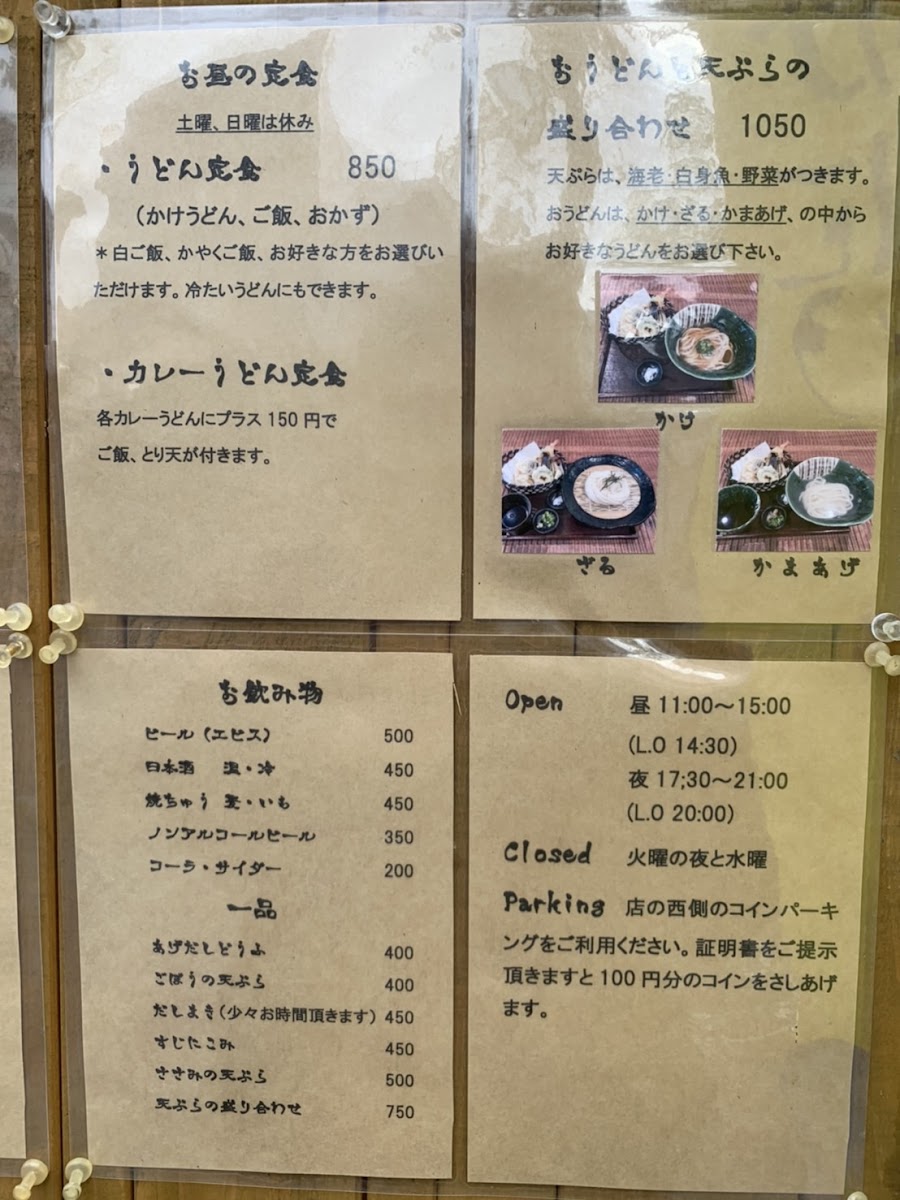 お昼の定食
土曜、日曜は休み
・うどん定食 850
（かけうどん、ご飯、おかず）
＊白ご飯、かやくご飯、お好きな方をお選びい
ただけます。冷たいうどんにもできます。
・カレーうどん定食
各カレーうどんにプラス150円で
ご飯、とり天が付きます。
おうどんと天ぷらの
盛り合わせ 1050
天ぷらは、海老・白身魚・野菜がつきます。
おうどんは、かけ・ざる・かまあげ、の中から
お好きなうどんをお選び下さい。
かけ
ざる
かまあげ
お飲み物
ビール（エビス） 500
日本酒 温・冷 450
焼ちゅう 麦・いも 450
ノンアルコールビール 350
コーラ・サイダー 200
一品
あげだしどうふ 400
ごぼうの天ぷら 400
だしまき（少々お時間頂きます） 450
すじにこみ 450
ささみの天ぷら 500
天ぷらの盛り合わせ 750
Open 昼 11:00～15:00
(L.O 14:30)
夜 17;30～21:00
(L.O 20:00)
Closed 火曜の夜と水曜
Parking 店の西側のコインパーキ
ングをご利用ください。証明書をご提示
頂きますと100円分のコインをさしあげ
ます。